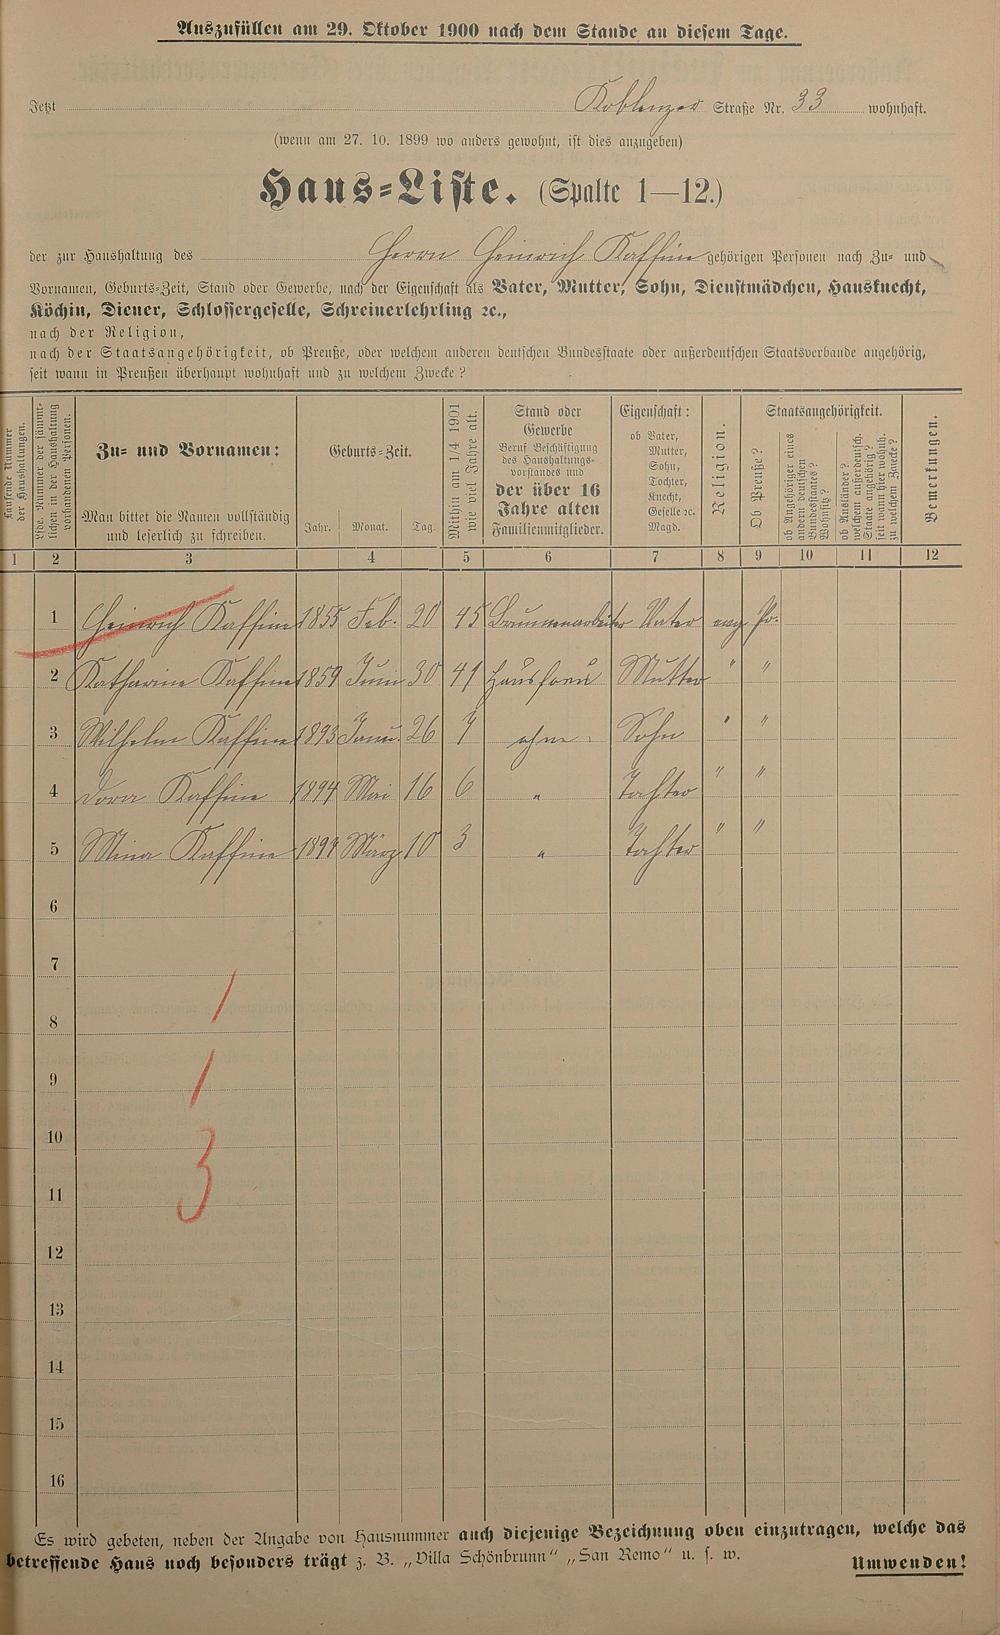 Auszufüllen am 29. Oktober 1900 nach dem Stande an diesem Tage.
Jetzt Koblenzer Straße Nr. 33 wohnhaft.
(wenn am 27. 10. 1899 wo anders gewohnt, ist dies anzugeben)
Haus-Liste. (Spalte 1—12.)
der zur Haushaltung des Herrn Heinrich Kaffine gehörigen Personen nach Zu- und
Vornamen, Geburts-Zeit, Stand oder Gewerbe, nach der Eigenschaft als Vater, Mutter, Sohn, Dienstmädchen, Hausknecht,
Köchin, Diener, Schlossergeselle, Schreinerlehrling ꝛc.,
nach der Religion,
nach der Staatsangehörigkeit, ob Preuße, oder welchem anderen deutschen Bundesstaate oder außerdeutschen Staatsverbande angehörig,
seit wann in Preußen überhaupt wohnhaft und zu welchem Zwecke?
Laufende Nummer der Haushaltungen.
Lfde. Nummer der sämmtlichen in der Haushaltung vorhandenen Personen.
Zu- und Vornamen:
Man bittet die Namen vollständig
und leserlich zu schreiben.
Geburts-Zeit.
Jahr. Monat. Tag.
Mithin am 1/4 1901 wie viel Jahre alt.
Stand oder
Gewerbe
Beruf Beschäftigung
des Haushaltungs-
vorstandes und
der über 16
Jahre alten
Familienmitglieder.
Eigenschaft:
ob Vater,
Mutter,
Sohn,
Tochter,
Knecht,
Geselle ꝛc.
Magd.
Religion.
Staatsangehörigkeit.
Ob Preuße?
ob Angehöriger eines andern deutschen Bundesstaates? Wohnsitz?
ob Ausländer? welchem außerdeutsch. Staate angehörig? seit wann hier wohnh. zu welchem Zwecke?
Bemerkungen.
1 2 3 4 5 6 7 8 9 10 11 12
1 Heinrich Kaffine 1855 Feb. 20 45 Brunnenarbeiter Vater evg Pr.
2 Katharine Kaffine 1859 Juni 30 41 Hausfrau Mutter " "
3 Wilhelm Kaffine 1893 Janu. 26 7 ohne Sohn " "
4 Dora Kaffine 1894 Mai 16 6 " Tochter " "
5 Mina Kaffine 1897 März 10 3 " Tochter " "
6
7
8
9
10
11
12
13
14
15
16
1
1
3
Es wird gebeten, neben der Angabe von Hausnummer auch diejenige Bezeichnung oben einzutragen, welche das
betreffende Haus noch besonders trägt z. B. „Villa Schönbrunn" „San Remo" u. s. w.
Umwenden!